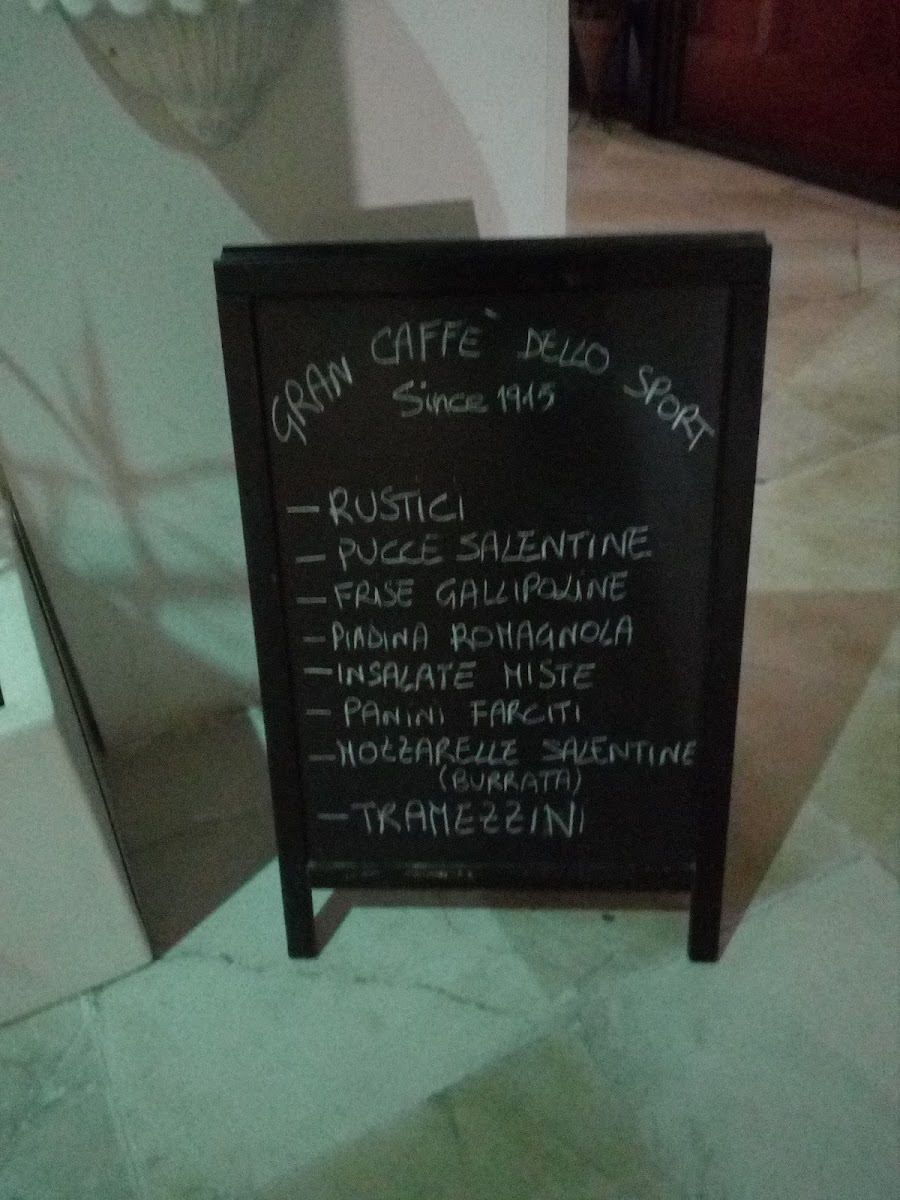 GRAN CAFFE` DELLO SPORT
Since 1915
- RUSTICI
- PUCCE SALENTINE
- FRISE GALLIPOLINE
- PIADINA ROMAGNOLA
- INSALATE MISTE
- PANINI FARCITI
- MOZZARELLE SALENTINE
(BURRATA)
- TRAMEZZINI